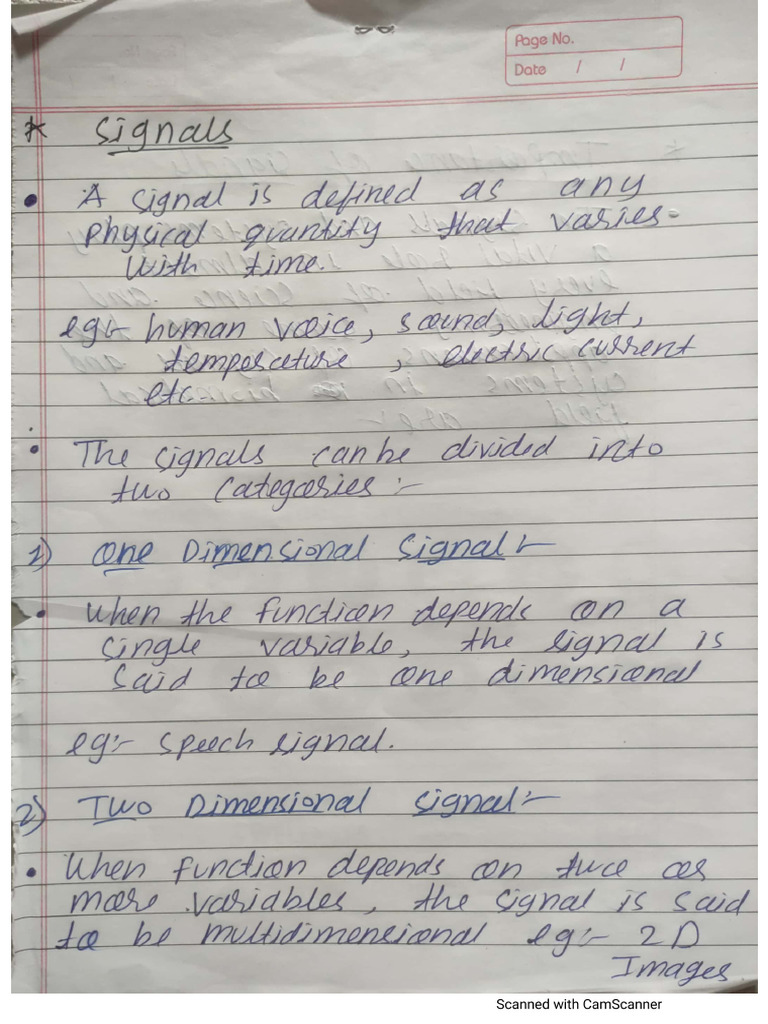 Page No.
Date / /
* Signals
• A signal is defined as any
physical quantity that varies
with time.
eg:- human voice, sound, light,
temperature, electric current
etc.
• The signals can be divided into
two categories :-
1) One Dimensional Signal :-
• When the function depends on a
single variable, the signal is
said to be one dimensional
eg:- speech signal.
2) Two Dimensional signal :-
• When function depends on two or
more variables, the signal is said
to be multidimensional eg:- 2D
Images
Scanned with CamScanner